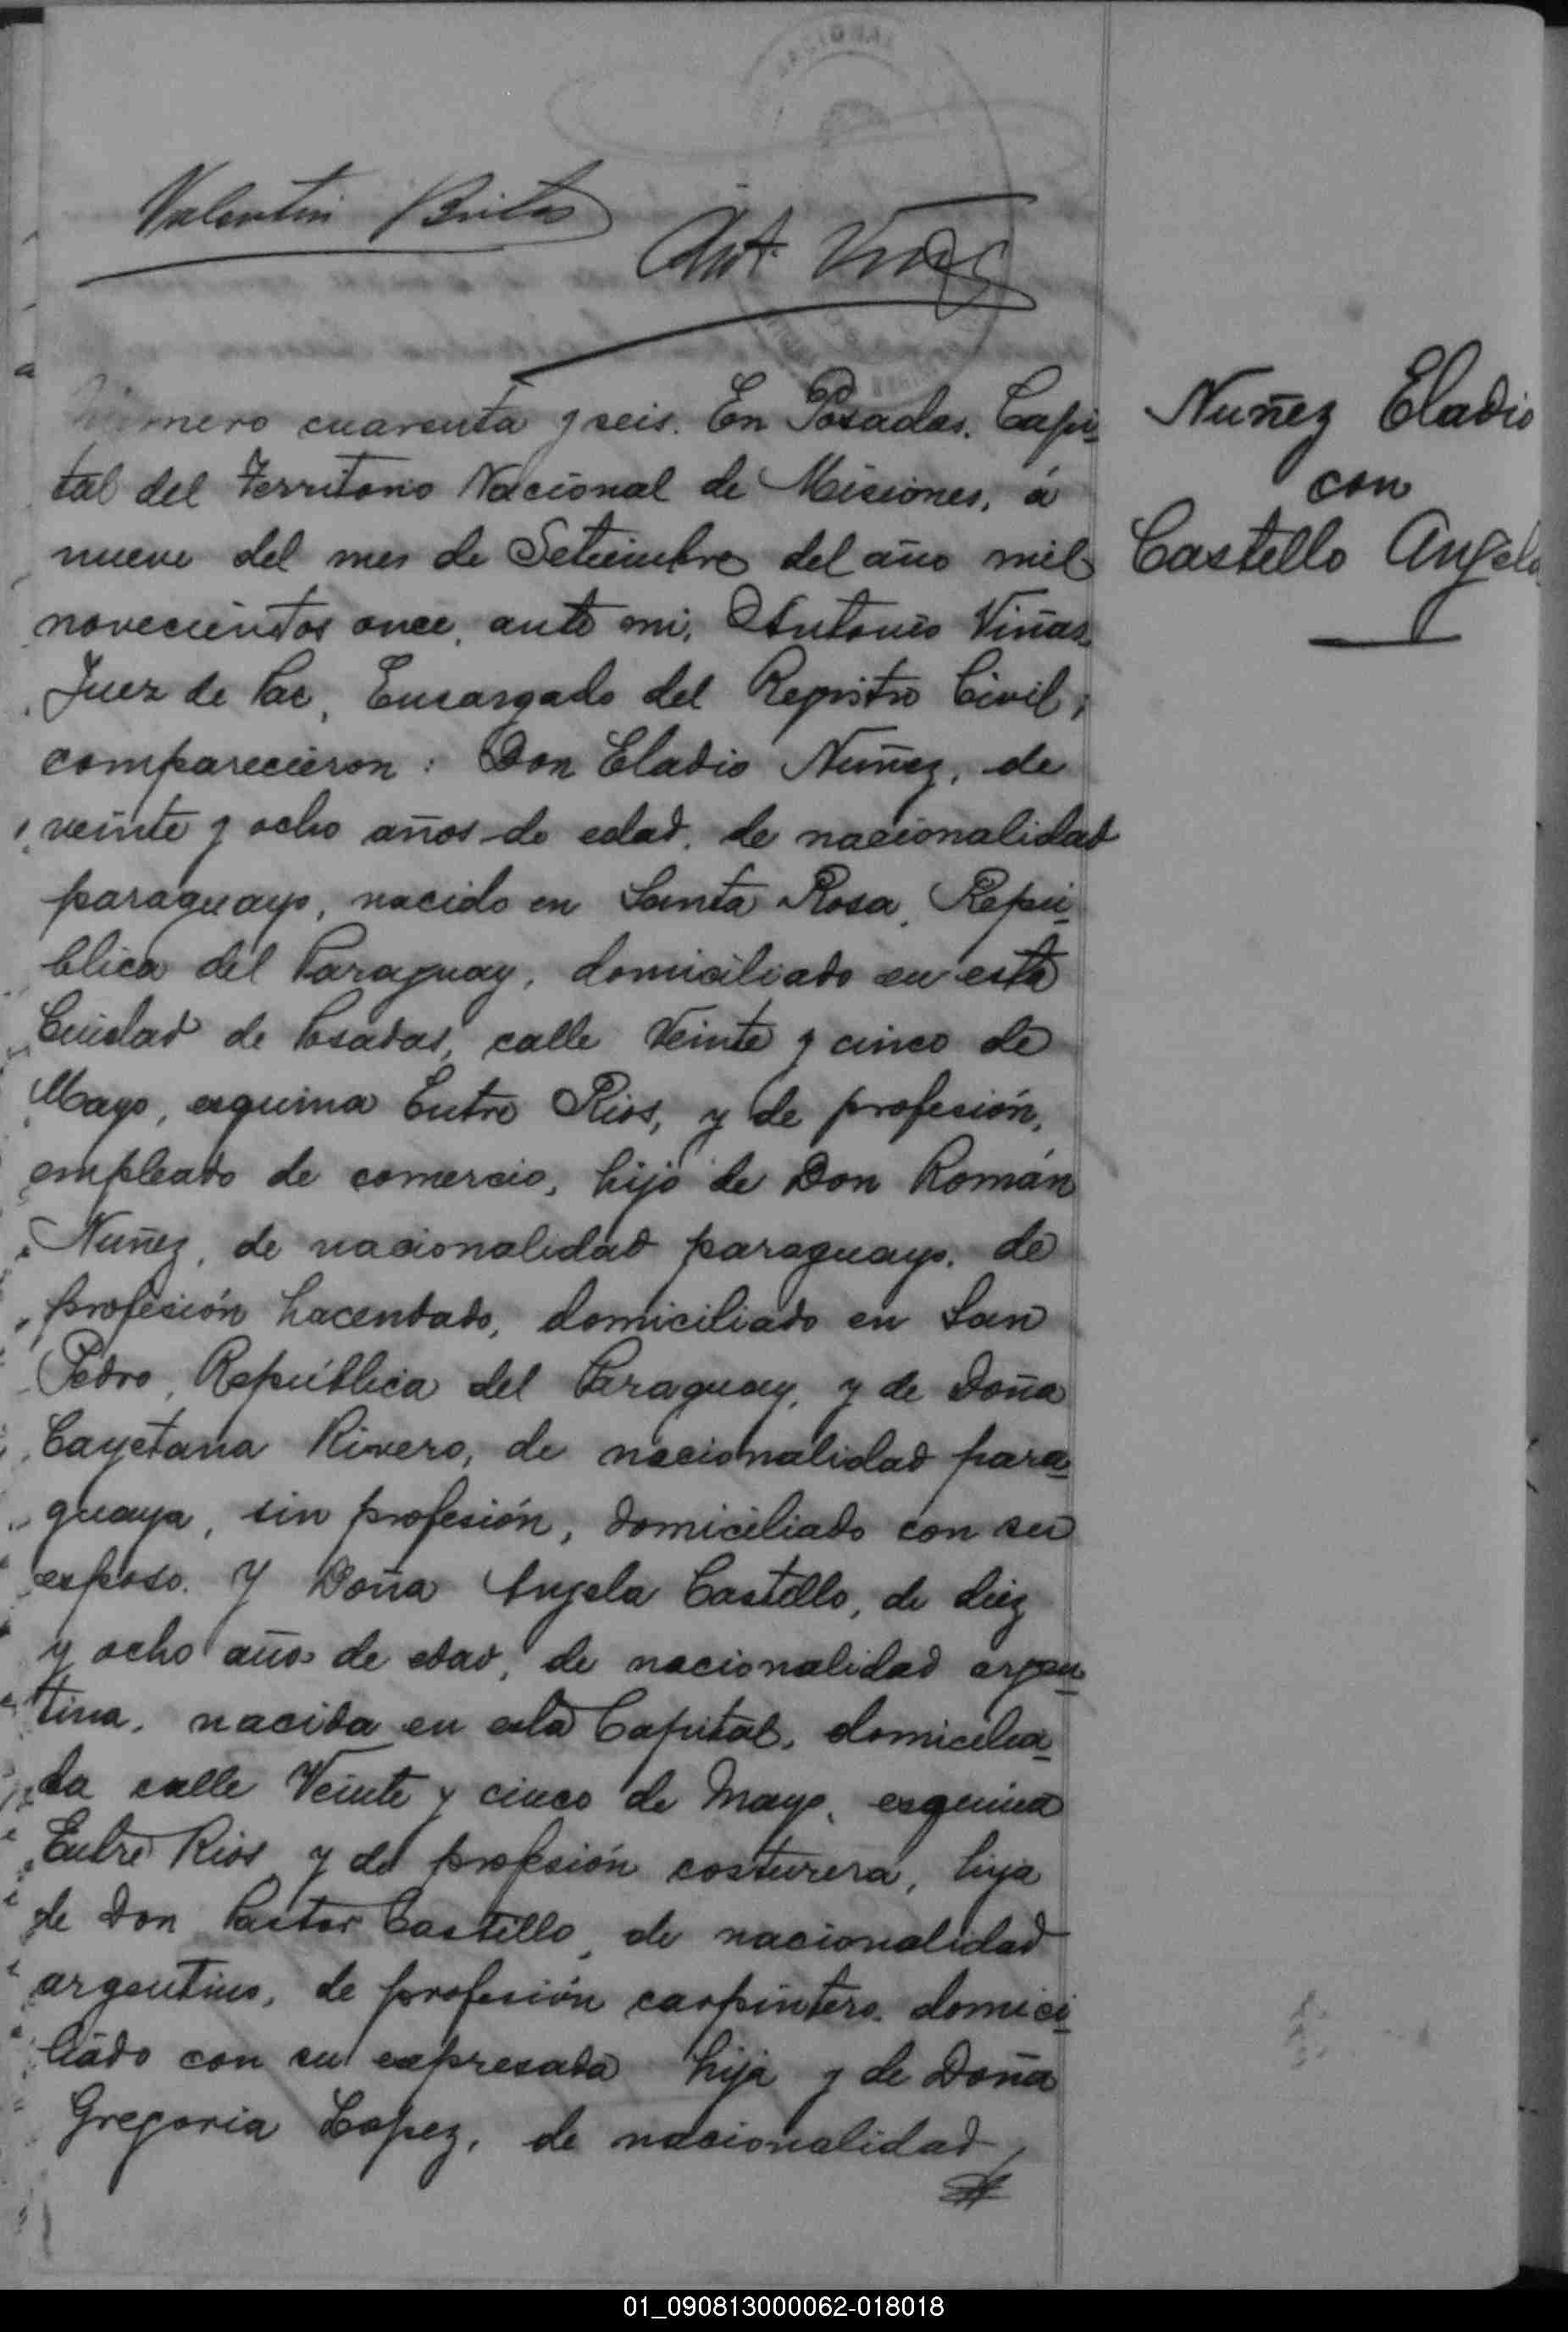 NACIONAL
Valentin Britos
Ant. Viñas
Número cuarenta y seis. En Posadas, Capi-
tal del Territorio Nacional de Misiones, á
nueve del mes de Setiembre del año mil
novecientos once, ante mi, Antonio Viñas,
Juez de Paz, Encargado del Registro Civil,
comparecieron: Don Eladio Nuñez, de
veinte y ocho años de edad, de nacionalidad
paraguayo, nacido en Santa Rosa, Repú-
blica del Paraguay, domiciliado en esta
Ciudad de Posadas, calle Veinte y cinco de
Mayo, esquina Entre Rios, y de profesión,
empleado de comercio, hijo de Don Román
Nuñez, de nacionalidad paraguayo, de
profesión hacendado, domiciliado en San
Pedro, República del Paraguay, y de Doña
Cayetana Rivero, de nacionalidad para-
guaya, sin profesión, domiciliado con su
esposo. Y Doña Angela Castello, de diez
y ocho años de edad, de nacionalidad argen-
tina, nacida en esta Capital, domicilia-
da calle Veinte y cinco de Mayo, esquina
Entre Rios y de profesión costurera, hija
de Don Pastor Castello, de nacionalidad
argentino, de profesión carpintero, domici-
liado con su expresada hija y de Doña
Gregoria Lopez, de nacionalidad
Nuñez Eladio
con
Castello Angela
01_090813000062-018018